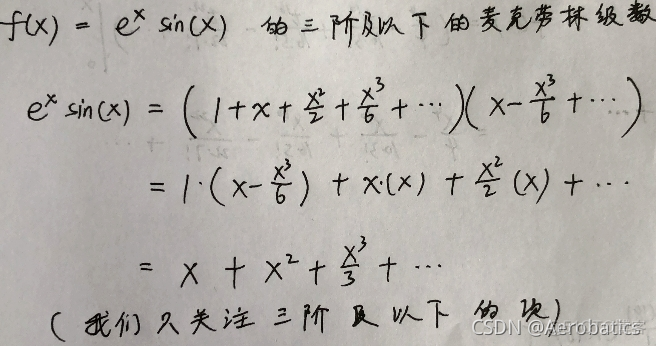 f(x) = eˣ sin(x) 的三阶及以下的麦克劳林级数
eˣ sin(x) = (1 + x + x²/2 + x³/6 + ⋯)(x - x³/6 + ⋯)
= 1·(x - x³/6) + x·(x) + x²/2 (x) + ⋯
= x + x² + x³/3 + ⋯
(我们只关注三阶及以下的项)
CSDN @Aerobatics